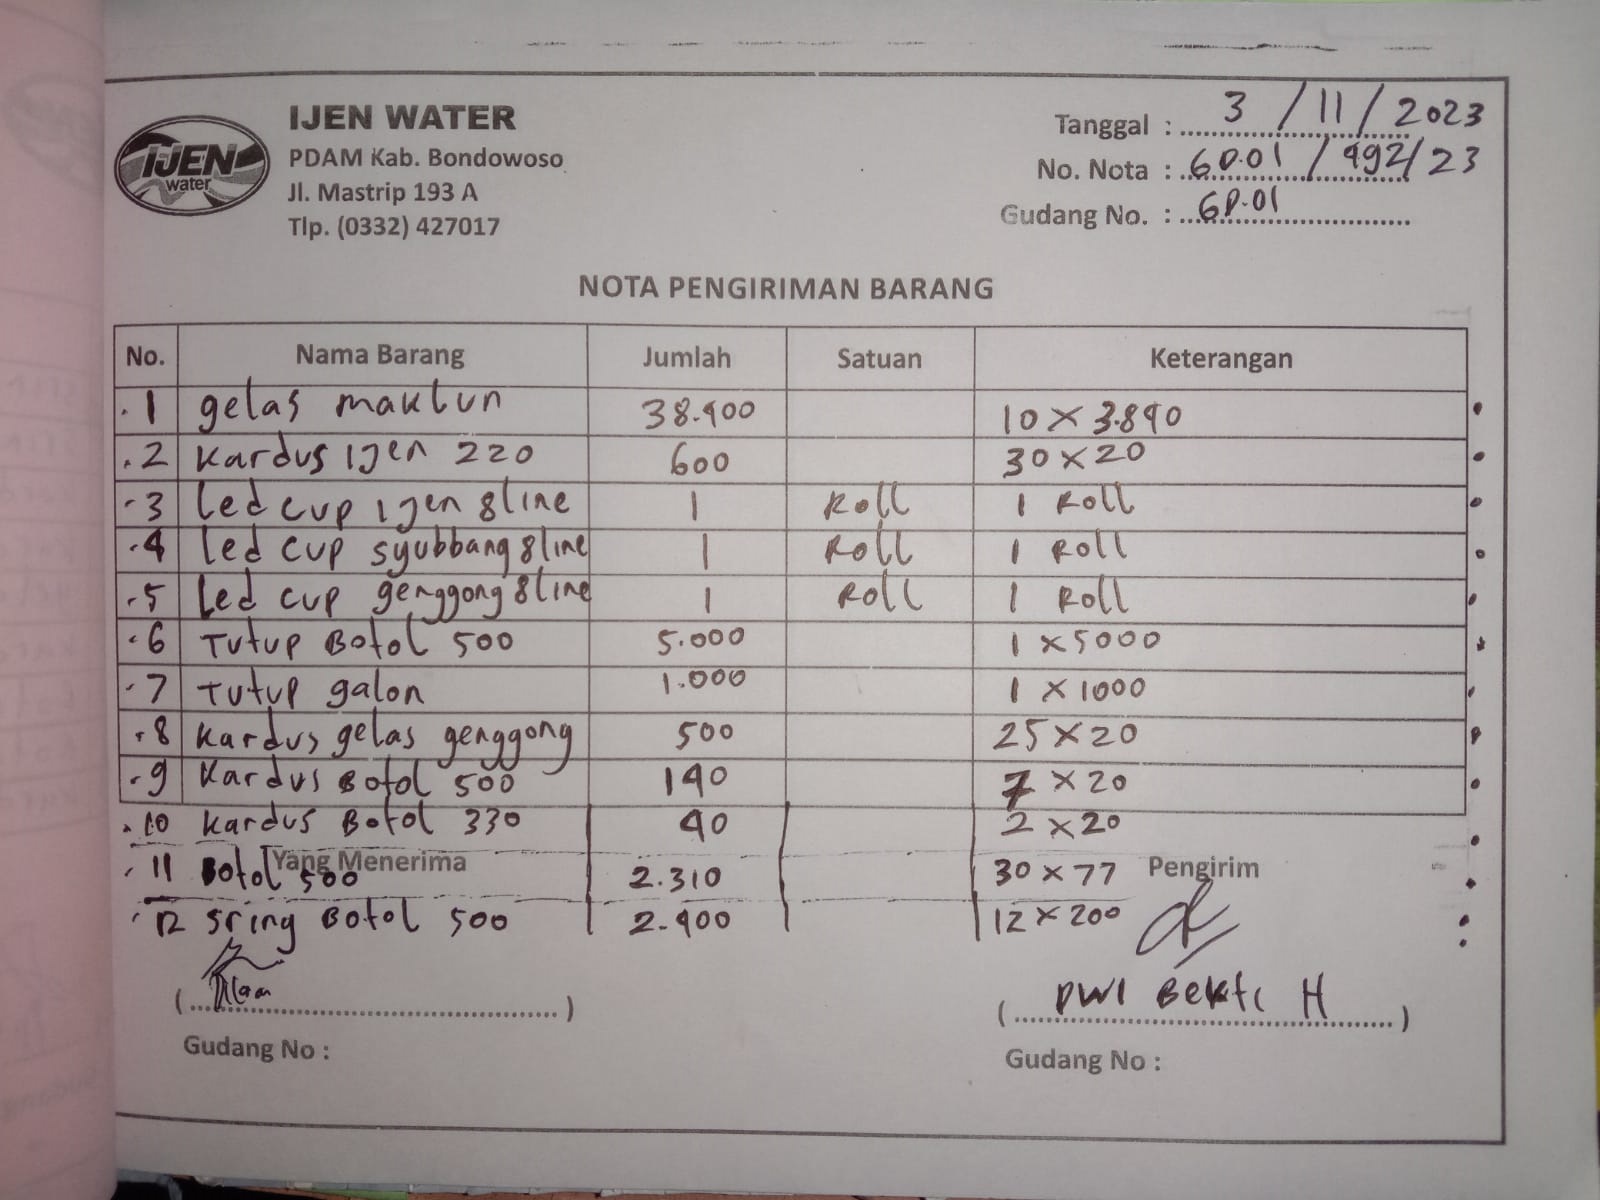 IJEN WATER
PDAM Kab. Bondowoso
Jl. Mastrip 193 A
Tlp. (0332) 427017
IJEN
water
Tanggal : 3 / 11 / 2023
No. Nota : GD.01 / 492/23
Gudang No. : GD.01
NOTA PENGIRIMAN BARANG
No. Nama Barang Jumlah Satuan Keterangan
1 gelas maklun 38.400 10 x 3.840
2 kardus ijen 220 600 30 x 20
3 Led cup ijen 8 line 1 Roll 1 Roll
4 Led cup syubbang 8 line 1 Roll 1 Roll
5 Led cup genggong 8 line 1 Roll 1 Roll
6 Tutup Botol 500 5.000 1 x 5000
7 Tutup galon 1.000 1 x 1000
8 kardus gelas genggong 500 25 x 20
9 Kardus Botol 500 140 7 x 20
10 kardus Botol 330 40 2 x 20
11 Botol 500 2.310 30 x 77
12 Sring Botol 500 2.400 12 x 200
Yang Menerima Pengirim
(..........) ( DWI Bekti H )
Gudang No : Gudang No :